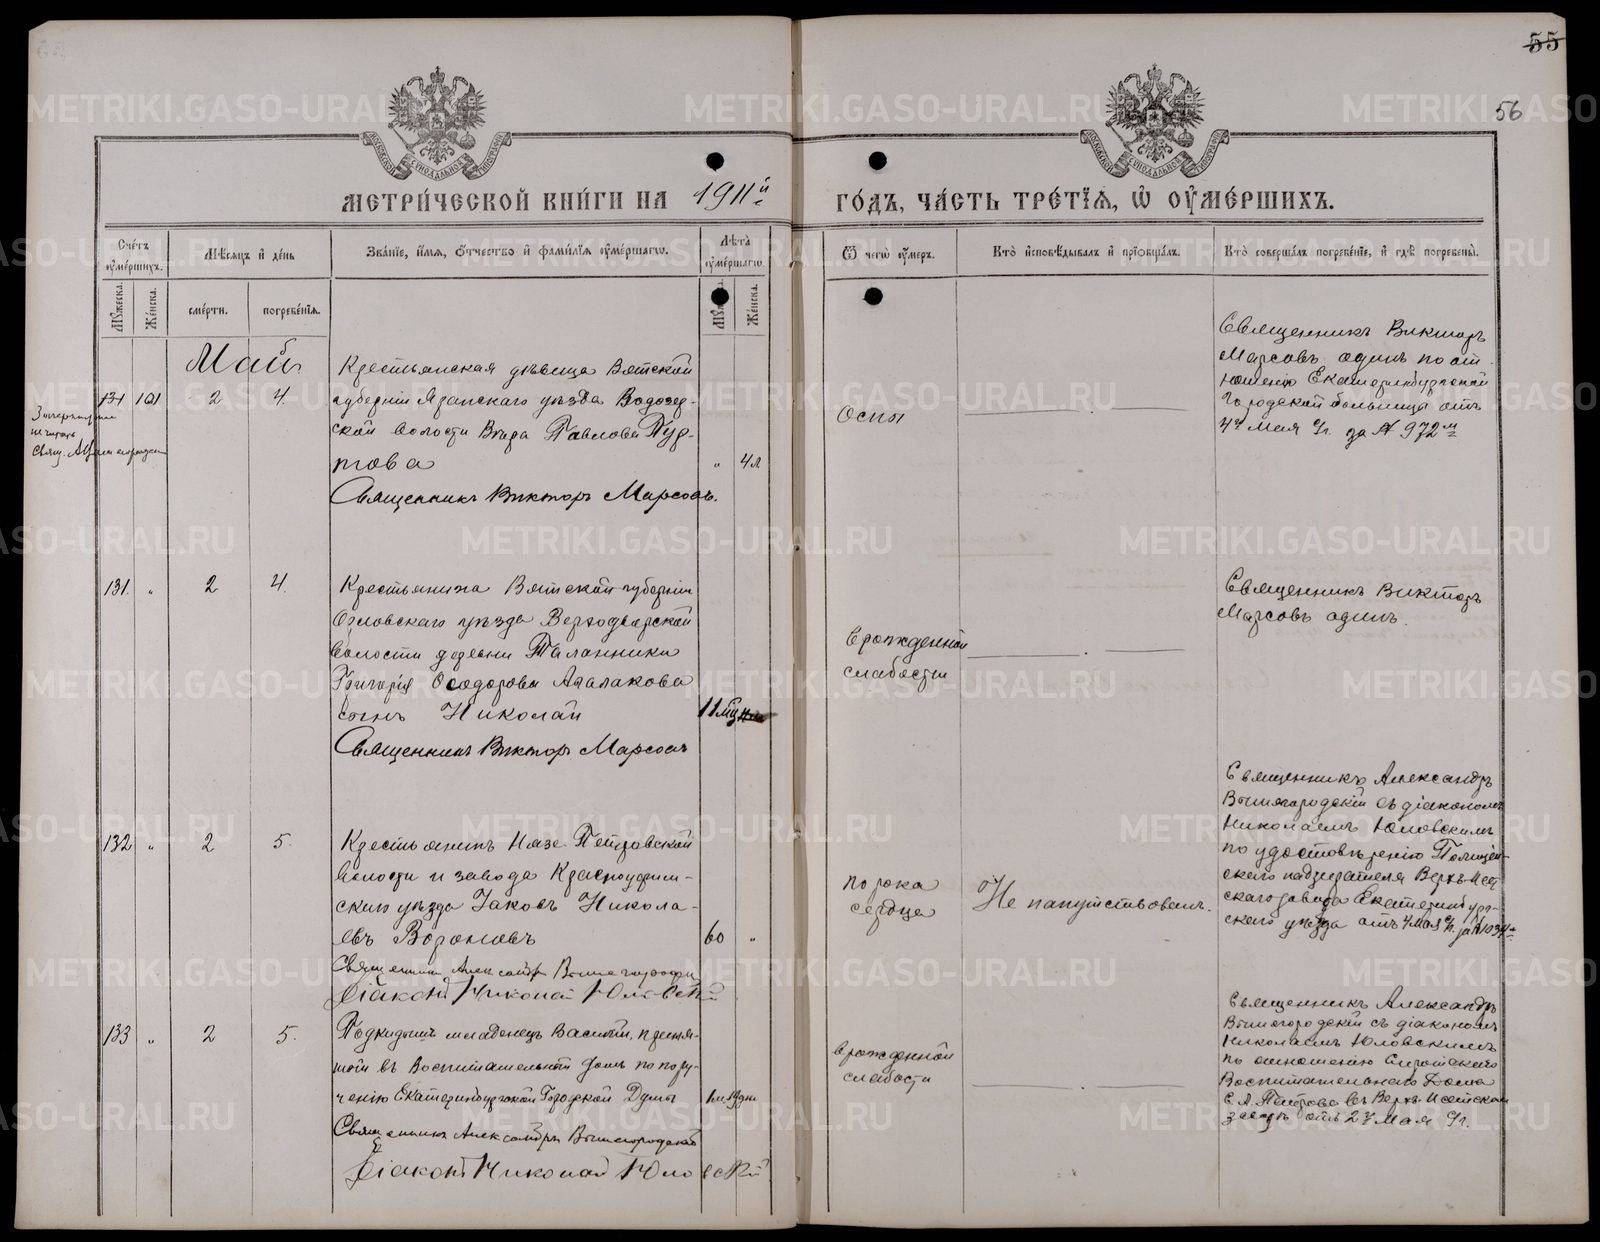 55
56
МЕТРИ́ЧЕСКОЙ КНИ́ГИ НА 1911й ГО́ДЪ, ЧА́СТЬ ТРЕ́ТІѦ, Ѽ ОУ҆МЕ́РШИХЪ.
Счетъ оумершихъ.
Мѣсяцъ и день
Званіе, имя, отчество и фамилія оумершагѡ.
Лѣта оумершагѡ.
Ѿ чегѡ оумеръ.
Кто исповѣдывалъ и пріобщалъ.
Кто совершалъ погребеніе, и гдѣ погребены.
Мужеска.
Женска.
смерти.
погребенія.
Женска.
Май
131 101 2 4
Крестьянская дѣвица Вятской
губерніи Яранскаго уѣзда Водозер-
ской волости Вѣра Павлова Пур-
това
" 4 л
Священникъ Викторъ Марсовъ.
Зачеркнутое
не читать
Свящ.
Оспы
Священникъ Викторъ
Марсовъ одинъ по от
ношенію Екатеринбургской
Городской больницы отъ
4го Мая с/г. за № 972м
131. " 2 4.
Крестьянина Вятской губерніи
Орловскаго уѣзда Верходворской
волости деревни Таланники
Григорія Ѳеодорова Агалакова
сынъ Николай
11 мц
Священникъ Викторъ Марсовъ
Врожденной
слабости
Священникъ Викторъ
Марсовъ одинъ.
132 " 2 5.
Крестьянинъ Нязе-Петровской
волости и завода Красноуфим-
скаго уѣзда Іаковъ Никола-
евъ Вороновъ
60 "
Священникъ Александръ Вышегородскій
Діаконъ Николай Юловскій
порока
сердца
Не напутствованъ.
Священникъ Александръ
Вышегородскій съ діакономъ
Николаемъ Юловскимъ
по удостовѣренію Полицей-
скаго надзирателя Верхъ-Исет
скаго завода Екатеринбург-
скаго уѣзда отъ 4 мая с/г. за №
133 " 2 5.
Подкидышъ младенецъ Василій, приня-
той въ Воспитательный домъ по пору-
ченію Екатеринбургской Городской Думы
1 м 19 дн
Священникъ Александръ Вышегородскій
Діаконъ Николай Юловскій
врожденной
слабости
Священникъ Александръ
Вышегородскій съ діакономъ
Николаемъ Юловскимъ
по отношенію Сиротскаго
Воспитательнаго Дома
С. А. Петрова въ Верхъ-Исетскомъ
заводѣ отъ 2го мая с/г.
METRIKI.GASO-URAL.RU